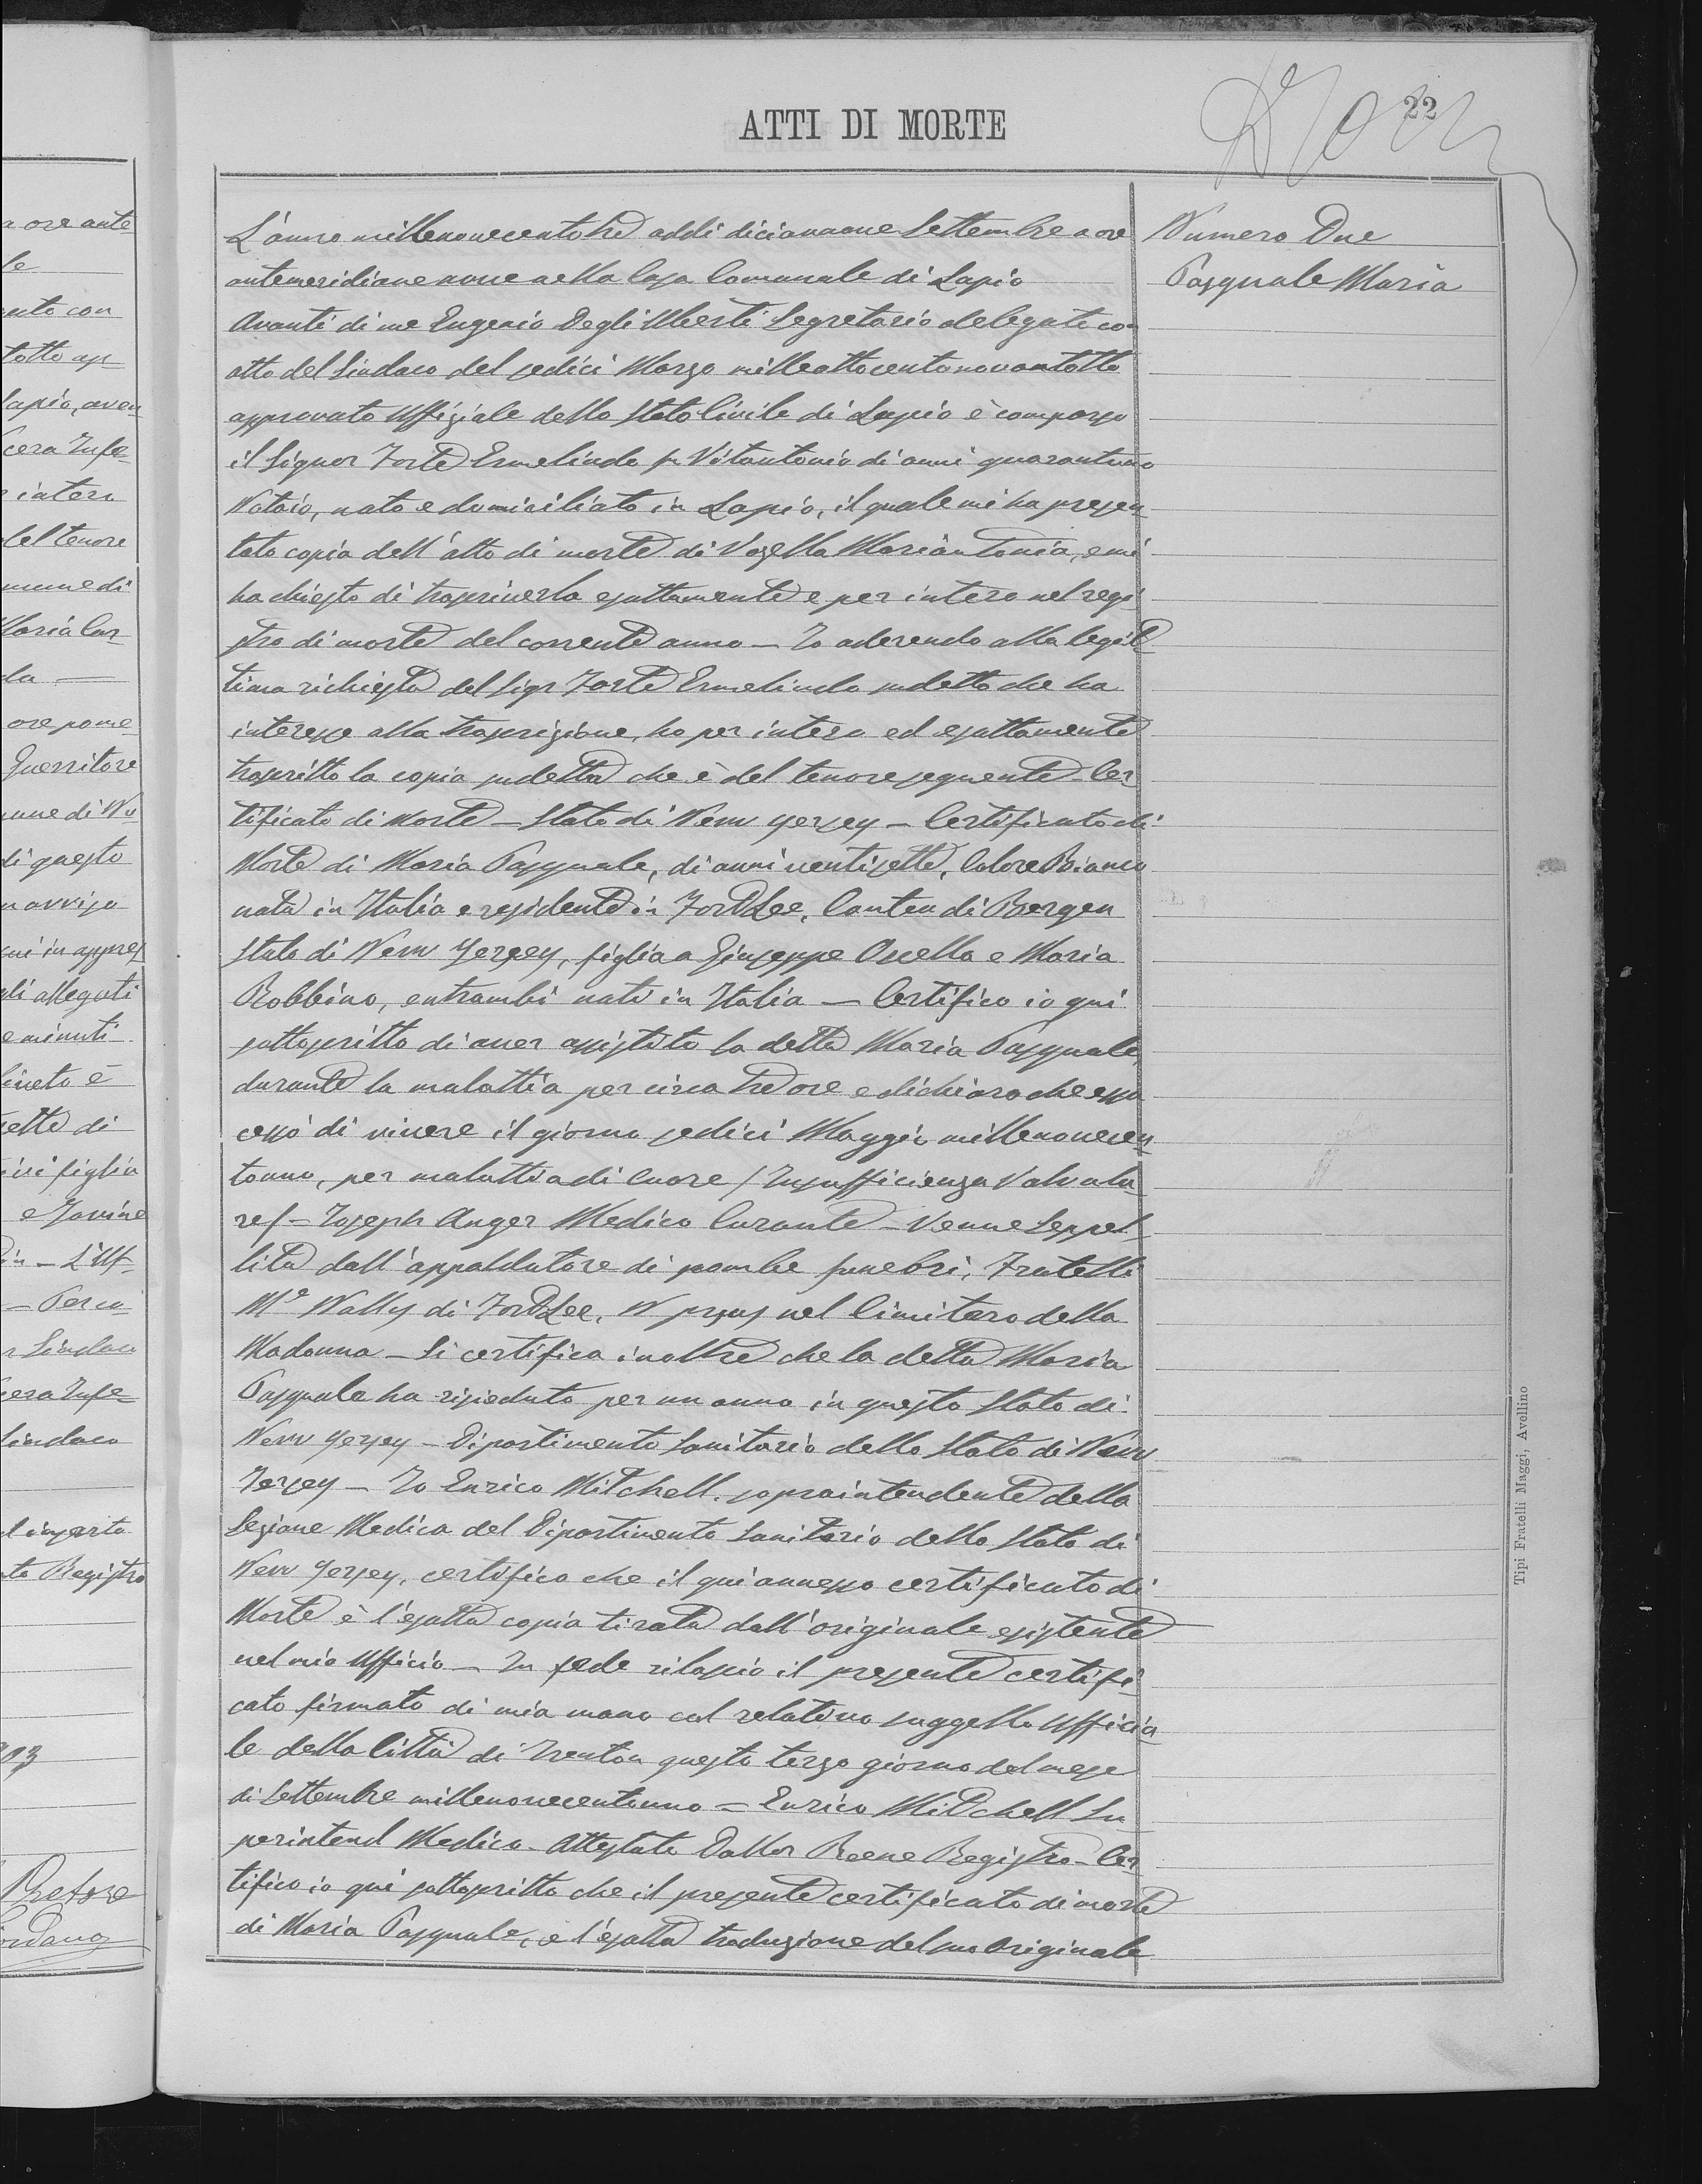 ATTI DI MORTE
22
Numero Due
Pasquale Maria
L'anno millenovecentotre addi diciannove Settembre a ore
antemeridiane nove nella Casa Comunale di Lapio
Avanti di me Eugenio Degli Uberti Segretario delegato con
atto del Sindaco del sedici Marzo milleottocentonovantotto
approvato Uffiziale dello Stato Civile di Lapio è comparso
il Signor Forte Ermelindo fu Vitantonio di anni quarantuno
Notaio, nato e domiciliato in Lapio, il quale mi ha presen
tato copia dell'atto di morte di Mariantonia, e mi
ha chiesto di trascriverla esattamente e per intero nel regi
stro di morte del corrente anno — Io aderendo alla legit
tima richiesta del Sigr Forte Ermelindo sudetto che ha
interesse alla trascrizione, ho per intero ed esattamente
trascritto la copia sudetta che è del tenore seguente - Cer
tificato di Morte — Stato di New Jersey — Certificato di
Morte di Maria Pasquale, di anni ventisette, Colore Bianco
nata in Italia e residente in Fort Lee, Contea di Bergen
Stato di New Jersey, figlia a Giuseppe Osella e Maria
Robbino, entrambi nati in Italia — Certifico io qui
sottoscritto di aver assistito la detta Maria Pasquale,
durante la malattia per circa tre ore e dichiaro che essa
cessò di vivere il giorno sedici Maggio millenovecen
touno, per malattia di cuore / Insufficienza Valvola
re/ — Joseph Anger Medico Curante — Venne Seppel
lita dall'appaltatore di pombe funebri, Fratelli
Mc Nally di Fort Lee, N nel Cimitero della
Madonna — Si certifica inoltre che la detta Maria
Pasquale ha risieduto per un anno in questo Stato di
New Jersey — Dipartimento Sanitario dello Stato di New
Jersey — Io Enrico Mitchell, sopraintendente della
Sezione Medica del Dipartimento Sanitario dello Stato di
New Jersey, certifico che il qui annesso certificato di
Morte è l'esatta copia tirata dall'originale esistente
nel mio Ufficio — In fede rilascio il presente certifi
cato firmato di mia mano col relativo suggello Officia
le della Città di Trenton questo terzo giorno del mese
di Settembre millenovecentouno — Enrico Mitchell Su
perintend Medico - Attestato Daller Reene Registro - Cer
tifico io qui sottoscritto che il presente certificato di morte
di Maria Pasquale, è l'esatta traduzione del suo Originale
Tipi Fratelli Maggi, Avellino
a ore ante
le
uto con
totto ap
Lapio, aven
cera Infe
e intera
del tenore
mune di
Maria Car
da —
ore pome
Guerritore
une di No
di questo
n avviso
qui in appres
gli allegati
e minuti
lineto è
ette di
figlia
e Iovine
in — L'Uf
— Per co
r Sindaco
cera Infe
Sindaco
d inserto
nte Registro
903
Pretore
ordano